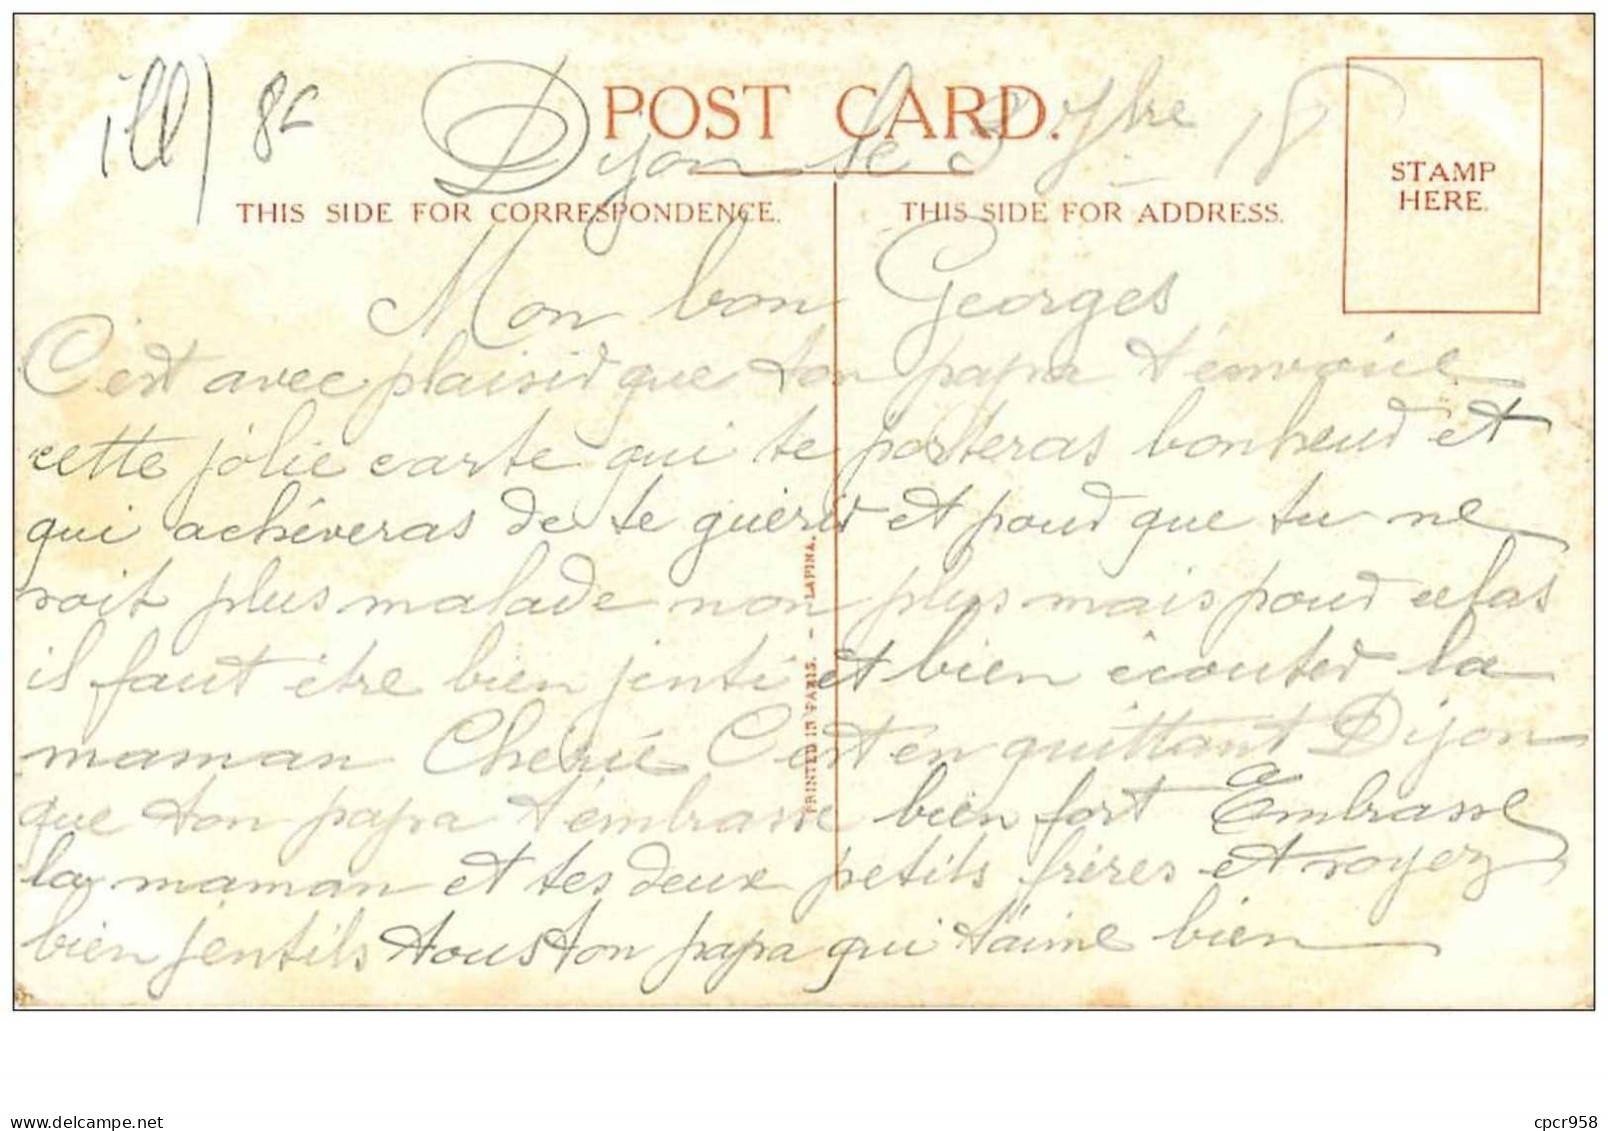 ill) 8c
POST CARD.
Dijon le 3 7bre 18
THIS SIDE FOR CORRESPONDENCE. THIS SIDE FOR ADDRESS.
STAMP
HERE.
Mon bon Georges
C'est avec plaisir que ton papa t'envoie
cette jolie carte qui te porteras bonheur et
qui achéveras de te guérir et pour que tu ne
soit plus malade non plus mais pour celas
il faut être bien jenti et bien écouter la
maman Cherié C'est en quittant Dijon
que ton papa t'embrasse bien fort Embrasse
la maman et tes deux petits fréres et soyez
bien jentils tous ton papa qui t'aime bien
PRINTED IN PARIS. - LAPINA.
delcampe.net
cpcr958